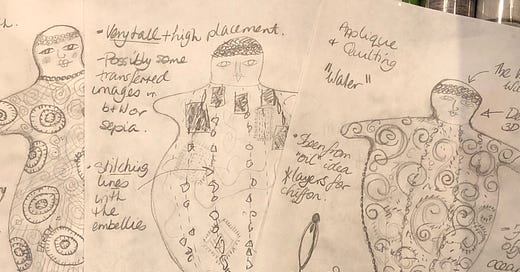 h.
• Very tall + high placement.
- Possibly some
transferred
images in
b+w or
sepia.
• Stitching
lines
with
the
embellies
Applique
+ Quilting
"Water"
from
"oil" idea
layers for
chiffon.
The
3D